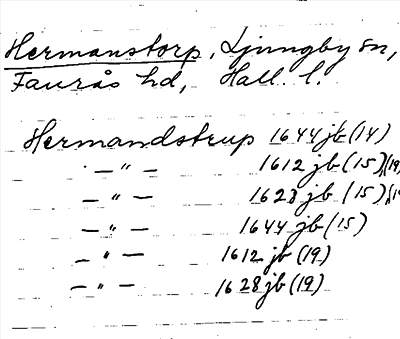 Hermanstorp, Ljungby sn,
Faurås hd, Hall. l.
Hermandstrup 1644 jb (14)
— " — 1612 jb (15), (19)
— " — 1628 jb (15)
— " — 1644 jb (15)
— " — 1612 jb (19)
— " — 1628 jb (19)